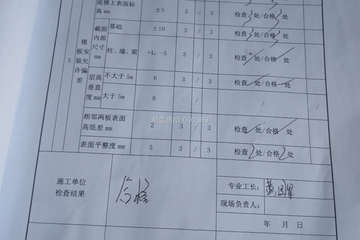 底模上表面标
高mm ±5 3 / 3 检查3处/合格3处
截面
内部
尺寸
mm
基础 ±10 3 / 检查/处/合格/处
柱、墙、梁 +4、-5 3 / 3 检查/处/合格/处
模板安装允许偏差
层高垂直度mm
不大于5m 6 3 / 3 检查/处/合格/处
大于5m 8 /
相邻两板表面
高低差mm 2 3 / 3 检查/处/合格/处
表面平整度mm 5 3 / 3 检查3处/合格3处
施工单位
检查结果
合格
专业工长:
现场负责人:
年 月 日